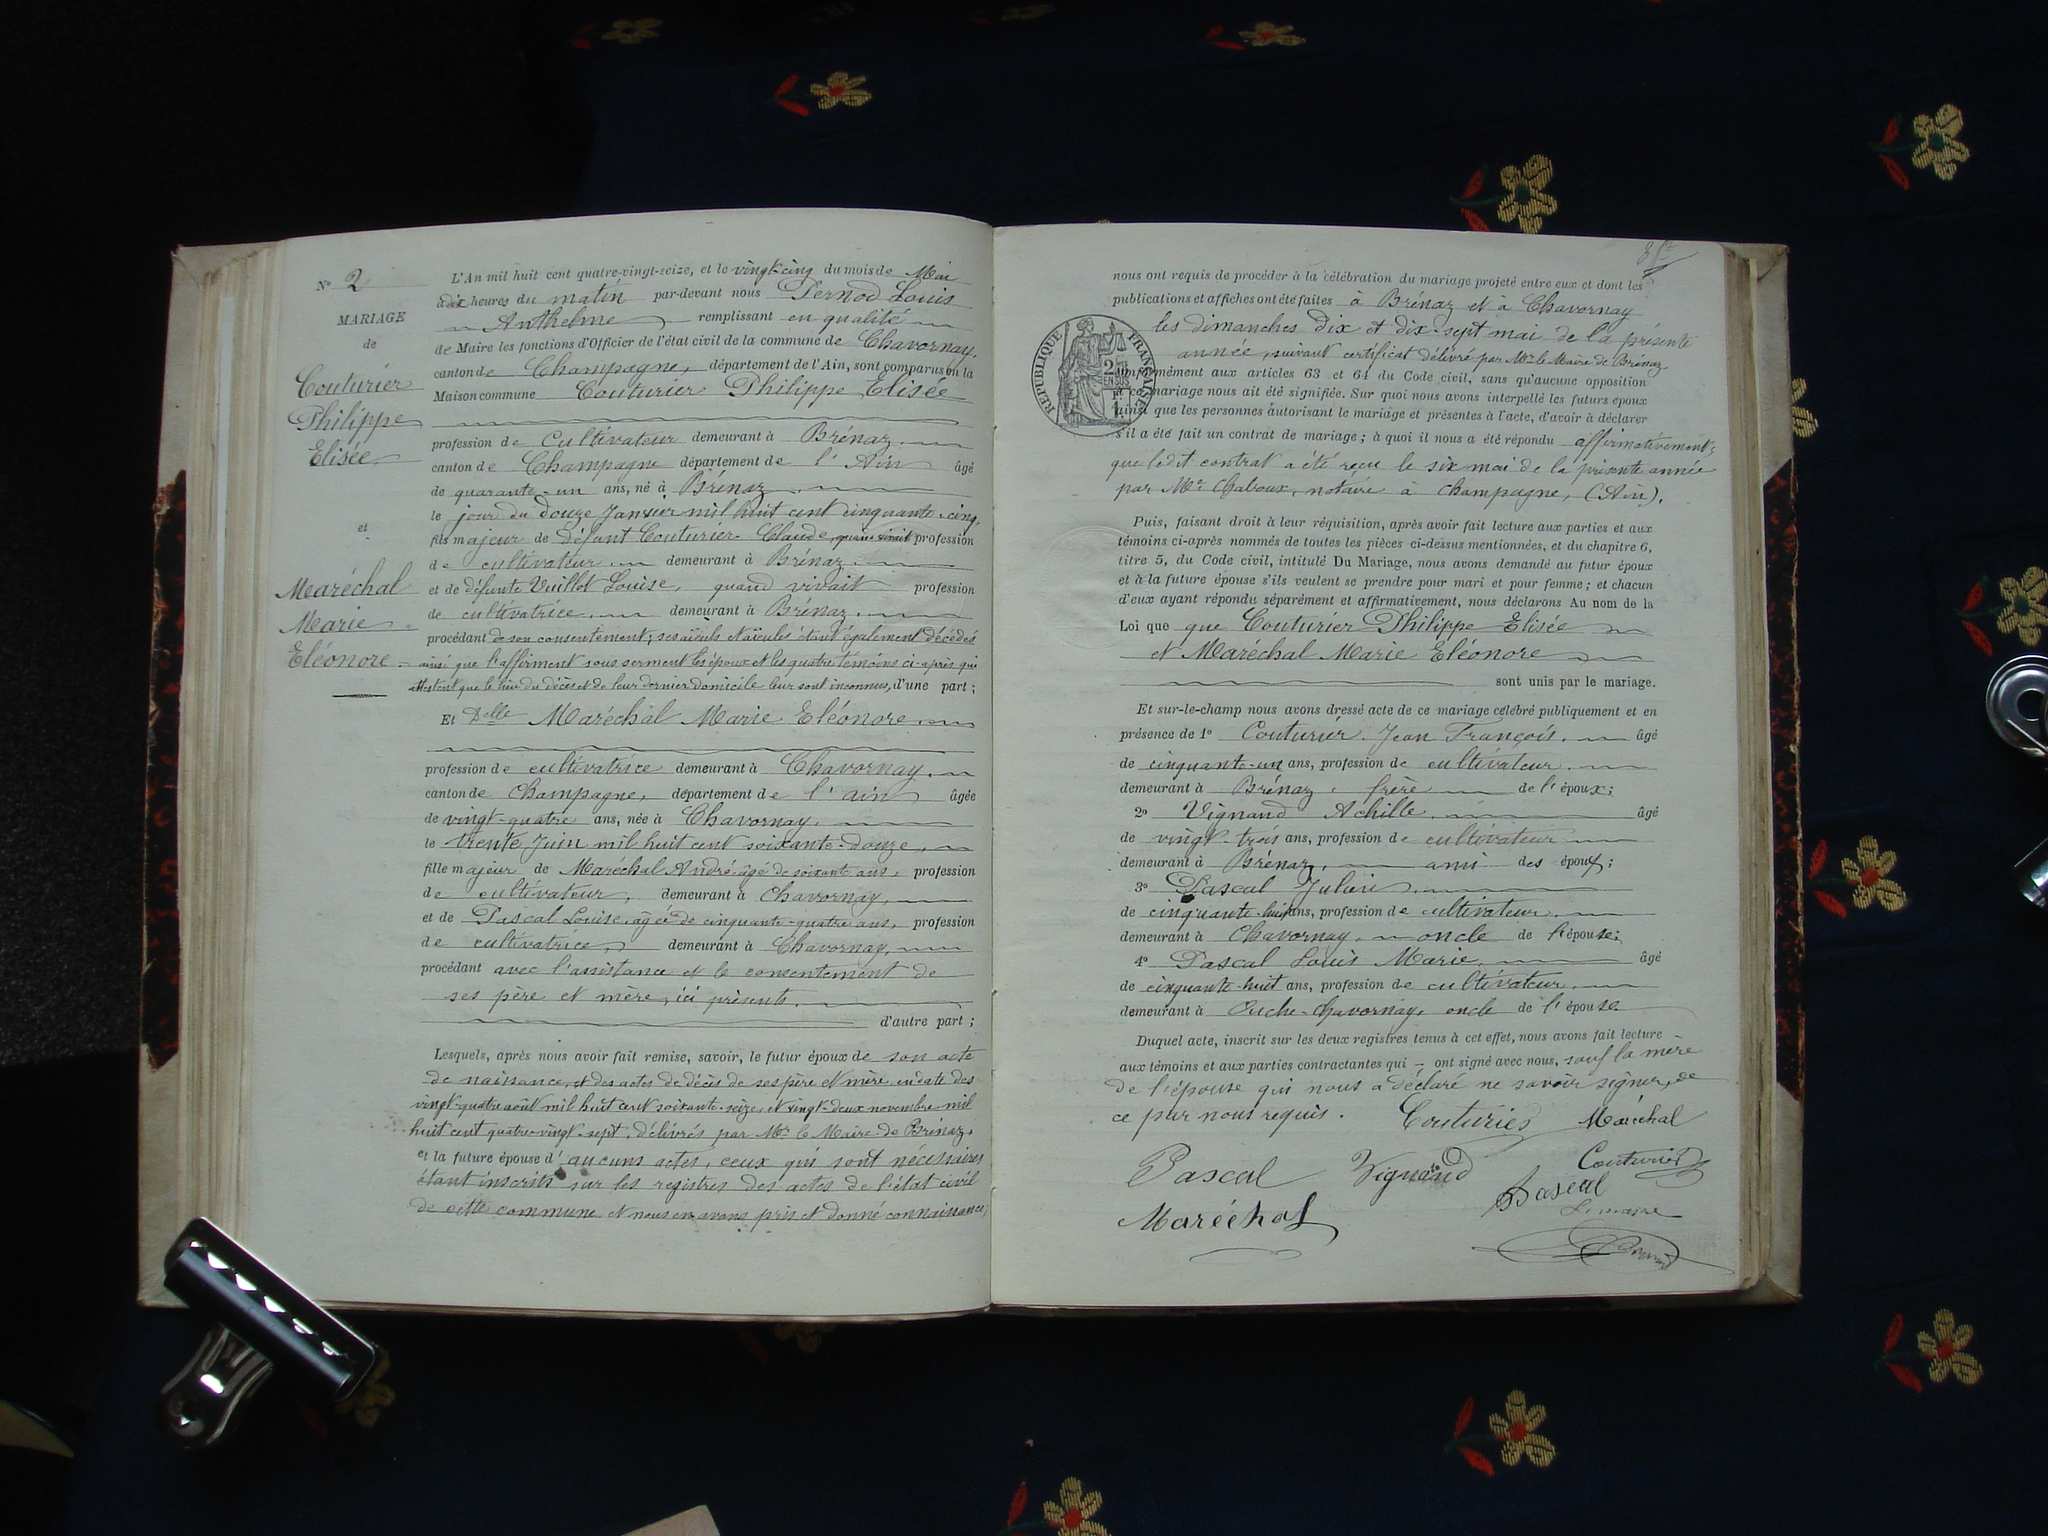 N° 2
MARIAGE
de
Couturier
Philippe
Elisée
et
Maréchal
Marie
Eléonore
L'An mil huit cent quatre-vingt-seize, et le vingt-cinq du mois de Mai
à dix heures du matin par-devant nous Pernod Louis
Anthelme remplissant en qualité
de Maire les fonctions d'Officier de l'état civil de la commune de Chavornay,
canton de Champagne, département de l'Ain, sont comparus en la
Maison commune Couturier Philippe Elisée
profession de Cultivateur demeurant à Brénaz
canton de Champagne département de l'Ain âgé
de quarante-un ans, né à Brénaz
le jour du douze Janvier mil huit cent cinquante-cinq,
fils majeur de défunt Couturier Claude, quand vivait profession
de cultivateur demeurant à Brénaz
et de défunte Vuillot Louise, quand vivait profession
de cultivatrice demeurant à Brénaz
procédant de son consentement; ses aïeuls et aïeules étant également décédés
ainsi que l'affirment sous serment les époux et les quatre témoins ci-après qui
attestent que le lieu du décès et de leur dernier domicile leur sont inconnus, d'une part;
Et Delle Maréchal Marie Eléonore
profession de cultivatrice demeurant à Chavornay
canton de Champagne, département de l'ain âgée
de vingt-quatre ans, née à Chavornay
le trente Juin mil huit cent soixante-douze,
fille majeur de Maréchal André âgé de soixante ans, profession
de cultivateur, demeurant à Chavornay,
et de Pascal Louise, âgée de cinquante-quatre ans, profession
de cultivatrice, demeurant à Chavornay,
procédant avec l'assistance et le consentement de
ses père et mère, ici présents.
d'autre part;
Lesquels, après nous avoir fait remise, savoir, le futur époux de son acte
de naissance, et des actes de décès de ses père et mère en date des
vingt-quatre août mil huit cent soixante-seize, et vingt-deux novembre mil
huit cent quatre-vingt-sept, délivrés par Mr le Maire de Brénaz,
et la future épouse d'aucuns actes, ceux qui sont nécessaires
étant inscrits sur les registres des actes de l'état civil
de cette commune et nous en avons pris et donné connaissance,
nous ont requis de procéder à la célébration du mariage projeté entre eux et dont les
publications et affiches ont été faites à Brénaz et à Chavornay
les dimanches dix et dix-sept mai de la présente
année, suivant certificat délivré par Mr le Maire de Brénaz
conformément aux articles 63 et 64 du Code civil, sans qu'aucune opposition
à ce mariage nous ait été signifiée. Sur quoi nous avons interpellé les futurs époux
ainsi que les personnes autorisant le mariage et présentes à l'acte, d'avoir à déclarer
s'il a été fait un contrat de mariage; à quoi il nous a été répondu affirmativement,
que ledit contrat a été reçu le six mai de la présente année
par Me Chaboux, notaire à Champagne, (Ain).
RÉPUBLIQUE FRANÇAISE
Puis, faisant droit à leur réquisition, après avoir fait lecture aux parties et aux
témoins ci-après nommés de toutes les pièces ci-dessus mentionnées, et du chapitre 6,
titre 5, du Code civil, intitulé Du Mariage, nous avons demandé au futur époux
et à la future épouse s'ils veulent se prendre pour mari et pour femme; et chacun
d'eux ayant répondu séparément et affirmativement, nous déclarons Au nom de la
Loi que que Couturier Philippe Elisée
et Maréchal Marie Eléonore
sont unis par le mariage.
Et sur-le-champ nous avons dressé acte de ce mariage célébré publiquement et en
présence de 1° Couturier Jean François, âgé
de cinquante-un ans, profession de cultivateur
demeurant à Brénaz, frère de l'époux;
2° Vignand Achille, âgé
de vingt-trois ans, profession de cultivateur
demeurant à Brénaz, ami des époux;
3° Pascal Julien
de cinquante-huit ans, profession de cultivateur,
demeurant à Chavornay, oncle de l'épouse;
4° Pascal Louis Marie, âgé
de cinquante-huit ans, profession de cultivateur,
demeurant à Ouche-Chavornay, oncle de l'épouse
Duquel acte, inscrit sur les deux registres tenus à cet effet, nous avons fait lecture
aux témoins et aux parties contractantes qui ont signé avec nous, sauf la mère
de l'épouse qui nous a déclaré ne savoir signer, de
ce par nous requis. Couturier Maréchal
Pascal Vignand Couturier
Pascal
Le maire
Maréchal